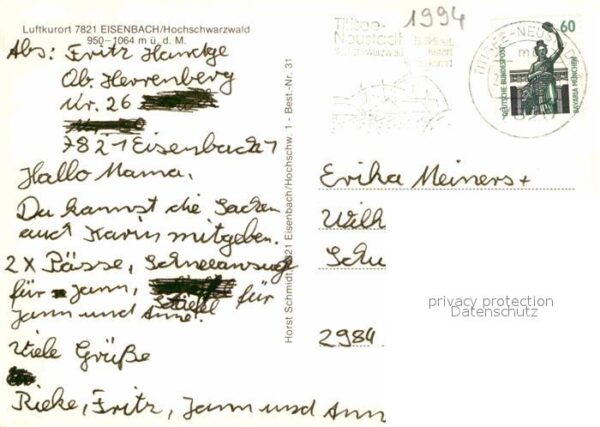 Luftkurort 7821 EISENBACH/Hochschwarzwald
950–1064 m ü. d. M.
Abs: Fritz
Ob. Herrenberg
Nr. 26
7821 Eisenbach 1
Hallo Mama,
Du kannst die Sachen
auch Karin mitgeben.
2 X Pässe, Schneeanzüge
für Jann, Stiefel für
Jann und Anne.
Viele Grüße
Rieke, Fritz, Jann und Ann
Horst Schmidt 7821 Eisenbach/Hochschw. 1 - Best.-Nr. 31
1994
Titisee-
Neustadt
TITISEE-NEUS
60
DEUTSCHE BUNDESPOST
BAVARIA MÜNCHEN
Erika Meiners +
Wilh
Schu
2984
privacy protection
Datenschutz